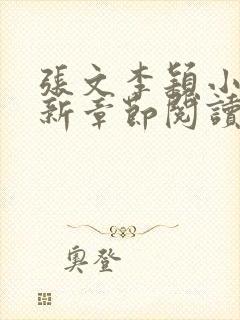 張文李穎小
新章節閱讀
奧登